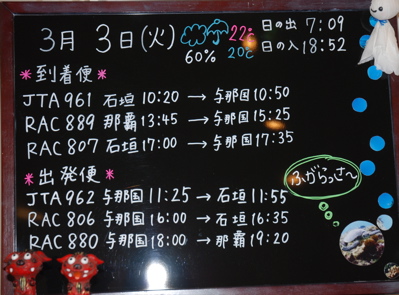 3月 3日(火) 22℃ 日の出 7:09
60% 20℃ 日の入 18:52
*到着便*
JTA961 石垣 10:20 → 与那国 10:50
RAC889 那覇 13:45 → 与那国 15:25
RAC807 石垣 17:00 → 与那国 17:35
*出発便*
JTA962 与那国 11:25 → 石垣 11:55
RAC806 与那国 16:00 → 石垣 16:35
RAC880 与那国 18:00 → 那覇 19:20
ふがらっさ〜